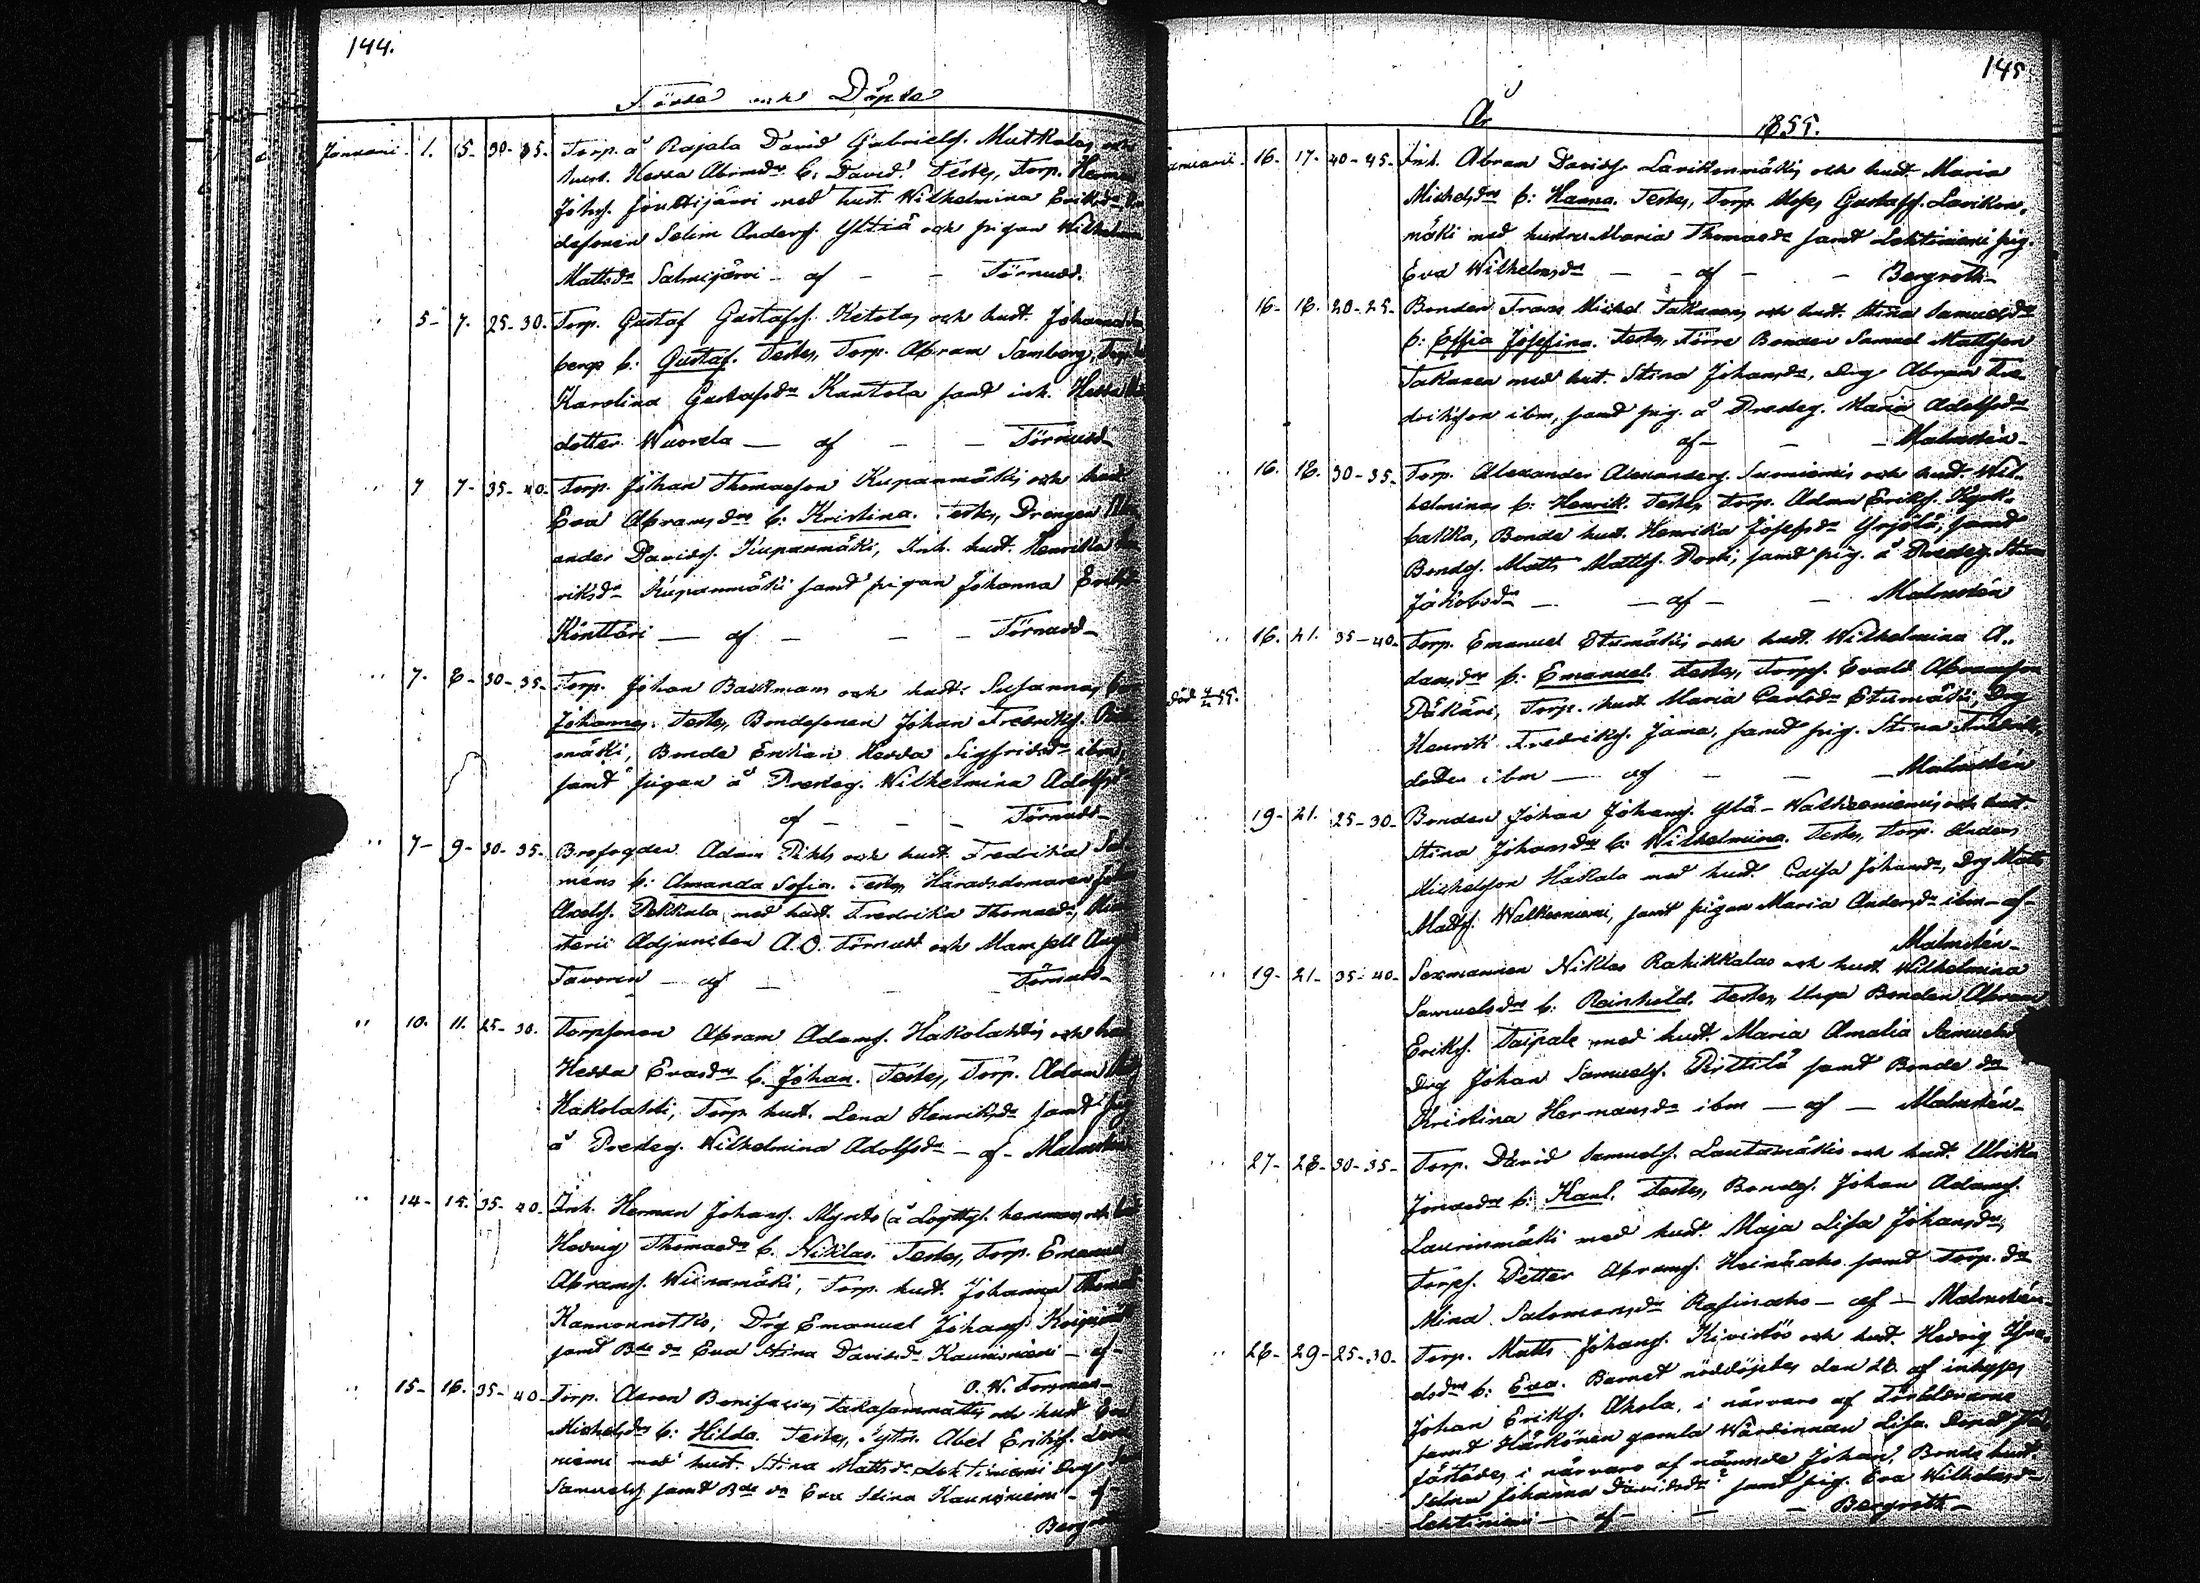 144.
Födde och Döpte
Januari 1. 5. 30-35. Torp. å Rajala David Gabrielss. Mutkalas och
hust. Hedda Abrmdrs b: David. Testes, Torp. Herman
Johss. Jouttijärvi med hust. Wilhelmina Eriksdr
desonen Selim Anderss. Yltiä och pigan Wilhelmina
Mattsdr Salmijärvi - af - - Törnudd.
" 5- 7. 25-30. Torp. Gustaf Gustafss. Ketolas och hust. Johanna
bergs b: Gustaf. Testes, Torp. Abram Samberg,
Karolina Gustafsdr Kantola samt inh. Hedda
dotter Wuorela - af - - Törnudd
" 7 7- 35-40- Torp. Johan Thomasson Kupanmäkis och hust
Eva Abramsdrs b: Kristina. Testes, Drengen
ander Davidss. Kupanmäki, Inh. hust. Henrika
riksdr Kupanmäki samt pigan Johanna Eriksdr
Könttäri - af - - - Törnudd-
" 7. 8-30-35- Torp. Johan Backmans och hust. Susannas
Johannes. Testes, Bondesonen Johan Fredrikss.
mäki, Bonde Enkan Hedda Sigfridsdr ibm,
samt pigan å Predeg. Wilhelmina Adolfsdr
af - - - Törnudd-
" 7- 9-30-35. Brofogden Adam Pihls och hust. Fredrika
méns b: Amanda Sofia. Testes Häradsdomaren Johan
Axelss. Pekkala med hust. Fredrika Thomasdr,
sterii Adjuncten A. O. Törnudd och Mamsell
Favoren - af - Törnudd-
" 10. 11. 25-30. Torpsonen Abram Adamss. Hakolahtis och hust
Hedda Evasdrs b. Johan. Testes, Torp. Adam
Hakolahti, Torp. hust. Lena Henriksdr samt pig
å Predeg. Wilhelmina Adolfsdr - af - Malmstén
" 14- 15. 35-40- Inh. Herman Johanss. Myntts (å hemman och hust
Hedvig Thomasdrs b. Niklas. Testes, Torp. Emanuel
Abramss. Wiinamäki, Torp. hust. Johanna Thomasdr
Kannonnotko, Drg Emanuel Johanss.
samt Bde dr Eva Stina Davidsdr Kauniniemi - af -
O. W. Forsman-
" 15- 16. 35-40- Torp. Aaron Bonifacius Takasammaltis och hust Eva
Michelsdrs b: Hilda. Testes, Abel Erikss.
niemi med hust. Stina Mattsdr Lehtiniemi Drg
Samuelss samt Bde dr Eva Stina Kauniniemi - af -
Bergroth
145
År 1855.
Januarii- 16- 17- 40-45- Inh. Abram Davidss. Larikonmäkis och hust. Maria
Michelsdrs b: Hanna. Testes, Torp. Moses Gustafss. Larikon-
mäki med hustru Maria Thomasdr samt Lehtiniemi pig.
Eva Wilhelmsdr - - af - - Bergroth-
16- 18. 20-25- Bonden Frans Michel Takanens och hust. Stina Samuelsdrs
b: Effia Josefina. Testes, Förre Bonden Samuel Mattsson
Takanen med hust. Stina Johansdr, drg Abram Fre-
drikson ibm, samt pig. å Predeg. Maria Adolfsdr
af - - - Malmstén-
" 16. 18. 30-35- Torp. Alexander Alexanderss. Suoniemis och hust. Wil-
helminas b: Henrik. Testes, Torp. Adam Erikss.
bakka, Bonde hust. Henrika Josefsdr Yrjölä, samt
Bondss. Matts Mattss. Porki, samt pig. å Predeg. Stina
Jakobsdr - - af - - Malmstén
" 16. 21. 35-40- Torp. Emanuel Etumäkis och hust. Wilhelmina A-
damsdrs b: Emanuel. Testes, Torps. Evald Abramsson
Päkäri, Torp. hust. Maria Carlsdr Etumäki, Drg
Henrik Fredrikss. Jama, samt pig. Stina Fredriks-
dotter ibm - af - - - Malmstén
19- 21. 25-30- Bonden Johan Johanss. Ylä-Walkeeniemis och hust.
Stina Johansdrs b: Wilhelmina. Testes, Torp. Anders
Michelsson Hakala med hust. Caisa Johansdr, Drg Matts
Mattss. Walkeeniemi, samt pigan Maria Andersdr ibm - af -
Malmstén-
" 19- 21- 35-40. Sexmannen Niklas Rahikkalas och hust Wilhelmina
Samuelsdrs b. Reinhold. Testes Unga Bonden Abram
Erikss. Taipale med hust. Maria Amalia Samuelsdr
Drg Johan Samuelss. Pirttilä samt Bonde dr
Kristina Hermansdr ibm - af - Malmstén-
" 27- 28-30-35- Torp. David Samuelss. Lautamäkis och hust. Ulrika
Jonasdrs b: Karl. Testes, Bondss. Johan Adamss.
Laurinmäki med hust. Maja Lisa Johansdr,
Torps. Petter Abramss. Heinäaho samt Torp. dr
Mina Salomonsdr Rasinaho - af - Malmstén-
" 28- 29-25-30- Torp. Matts Johanss. Kivistös och hust. Hedvig
elsdrs b: Eva. Barnet nöddöptes den 28. af inhyses
Johan Erikss. Ahola, i närvaro af Föräldrarne
samt Härkönen gamla Wärdinnan Lisa. Dopet
fästades i närvaro af nämnde Johan, Bonde hust.
Selma Johanna Davidsdr samt pig. Eva Wilhelmsdr
Lehtiniemi - af - - - Bergroth-